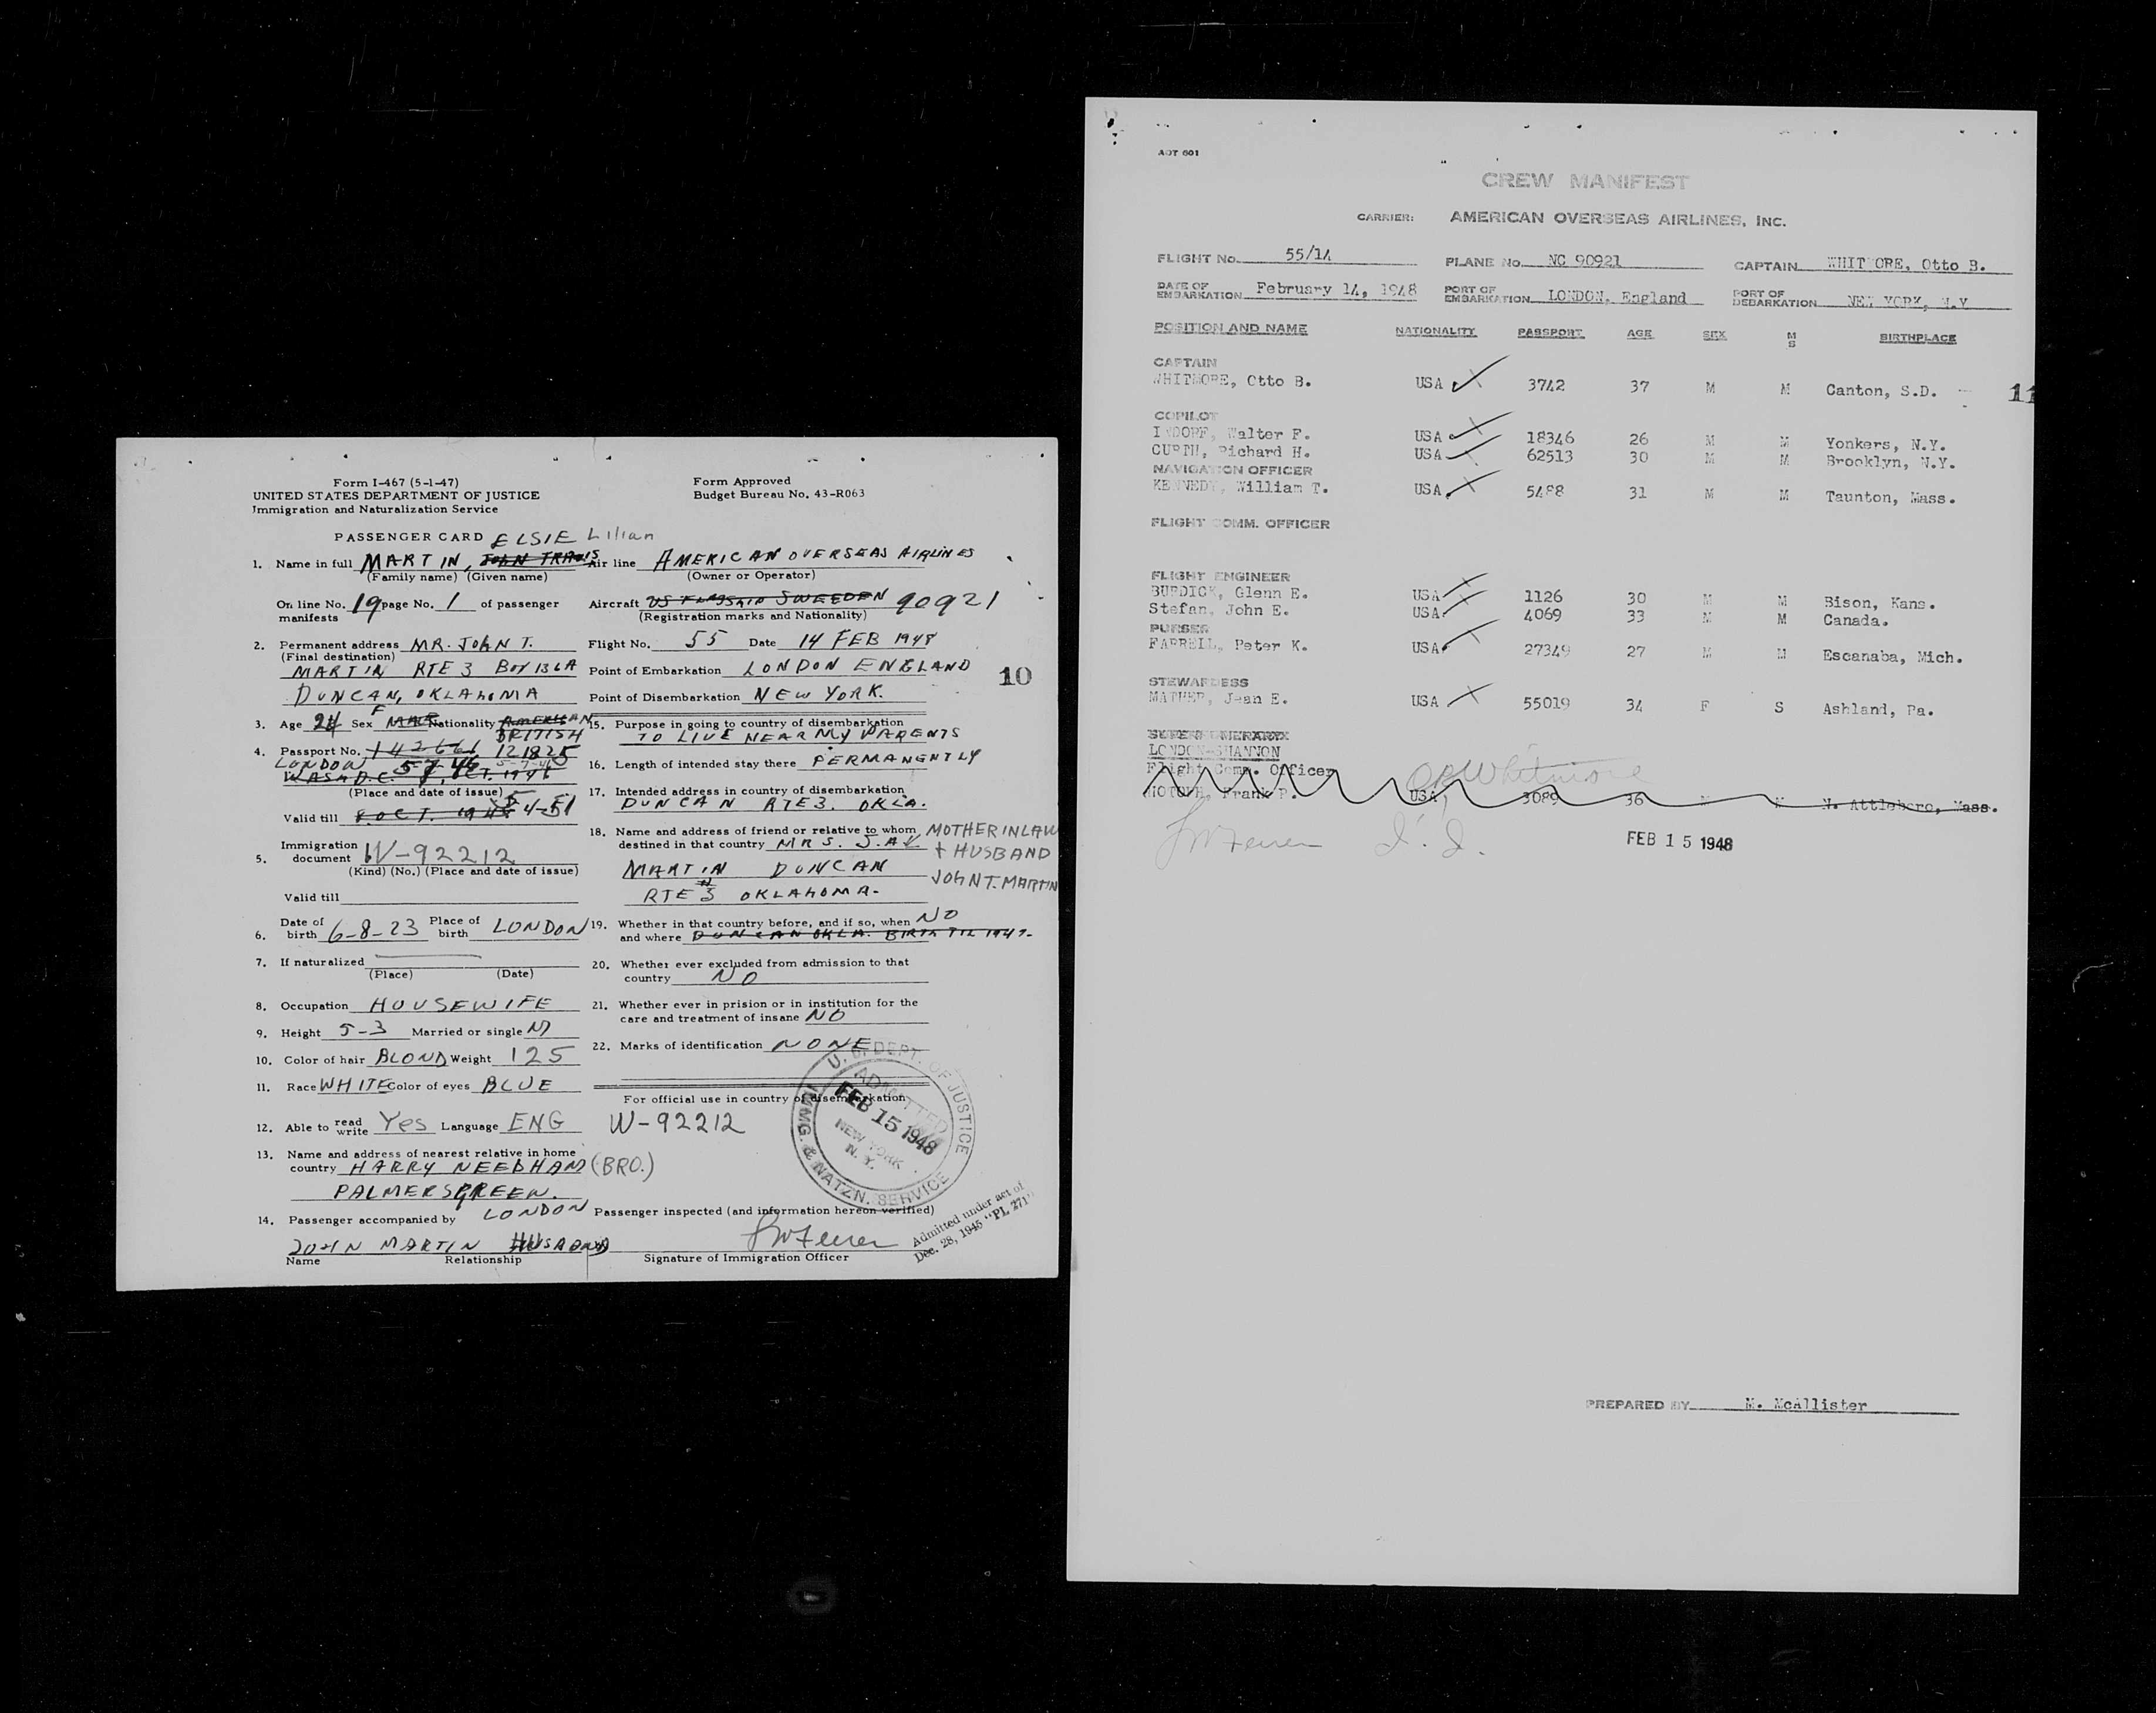 Form I-467 (5-1-47)
UNITED STATES DEPARTMENT OF JUSTICE
Immigration and Naturalization Service
Form Approved
Budget Bureau No. 43-R063
PASSENGER CARD ELSIE Lilian
1. Name in full MARTIN, JOHN TRAVIS
(Family name) (Given name)
On line No. 19 page No. 1 of passenger
manifests
2. Permanent address MR. JOHN T.
(Final destination)
MARTIN RTE 3 BOX 136A
DUNCAN, OKLAHOMA
3. Age 24 Sex F Nationality AMERICAN
BRITISH
4. Passport No. 142661 121825
LONDON 5-7-46 5-7-46
WASH D.C. OCT. 1946
(Place and date of issue)
Valid till 5-4-51
5. Immigration
document W-92212
(Kind) (No.) (Place and date of issue)
Valid till
6. Date of
birth 6-8-23 Place of
birth LONDON
7. If naturalized
(Place) (Date)
8. Occupation HOUSEWIFE
9. Height 5-3 Married or single M
10. Color of hair BLOND Weight 125
11. Race WHITE Color of eyes BLUE
12. Able to read
write Yes Language ENG
13. Name and address of nearest relative in home
country HARRY NEEDHAM (BRO.)
PALMERSGREEN.
LONDON
14. Passenger accompanied by
JOHN MARTIN HUSBAND
Name Relationship
Air line AMERICAN OVERSEAS AIRLINES
(Owner or Operator)
Aircraft US FLAGSHIP SWEEDEN 90921
(Registration marks and Nationality)
Flight No. 55 Date 14 FEB 1948
Point of Embarkation LONDON ENGLAND
Point of Disembarkation NEW YORK.
10
15. Purpose in going to country of disembarkation
TO LIVE NEAR MY PARENTS
16. Length of intended stay there PERMANENTLY
17. Intended address in country of disembarkation
DUNCAN RTE 3. OKLA.
18. Name and address of friend or relative to whom MOTHER IN LAW
destined in that country MRS. J.A. + HUSBAND
MARTIN DUNCAN JOHN T. MARTIN
RTE #3 OKLAHOMA.
19. Whether in that country before, and if so, when NO
and where DUNCAN OKLA. BIRTH TIL 1947.
20. Whether ever excluded from admission to that
country NO
21. Whether ever in prision or in institution for the
care and treatment of insane NO
22. Marks of identification NONE
For official use in country of disembarkation
W-92212
U. S. DEPT. OF JUSTICE
ADMITTED
FEB 15 1948
NEW YORK
N. Y.
IMMG. & NATZN. SERVICE
Passenger inspected (and information hereon verified)
Signature of Immigration Officer
Admitted under act of
Dec. 28, 1945 "PL 271"
AOT 601
CREW MANIFEST
CARRIER: AMERICAN OVERSEAS AIRLINES, INC.
FLIGHT No. 55/14 PLANE No. NC 90921 CAPTAIN WHITMORE, Otto B.
DATE OF
EMBARKATION February 14, 1948 PORT OF
EMBARKATION LONDON, England PORT OF
DEBARKATION NEW YORK, N.Y
POSITION AND NAME NATIONALITY PASSPORT AGE SEX M
S BIRTHPLACE
CAPTAIN
WHITMORE, Otto B. USA 3742 37 M M Canton, S.D.
11
COPILOT
INDORF, Walter F. USA 18346 26 M M Yonkers, N.Y.
CURTH, Richard H. USA 62513 30 M M Brooklyn, N.Y.
NAVIGATION OFFICER
KENNEDY, William T. USA 5488 31 M M Taunton, Mass.
FLIGHT COMM. OFFICER
FLIGHT ENGINEER
BURDICK, Glenn E. USA 1126 30 M M Bison, Kans.
Stefan, John E. USA 4069 33 M M Canada.
PURSER
FARRELL, Peter K. USA 27349 27 M M Escanaba, Mich.
STEWARDESS
MATHER, Jean E. USA 55019 34 F S Ashland, Pa.
SUPERNUMERARY
LONDON-SHANNON
Flight Comm. Officer
Frank P. USA 3089 36 M M N. Attleboro, Mass.
OB Whitmore
FEB 15 1948
PREPARED BY M. McAllister